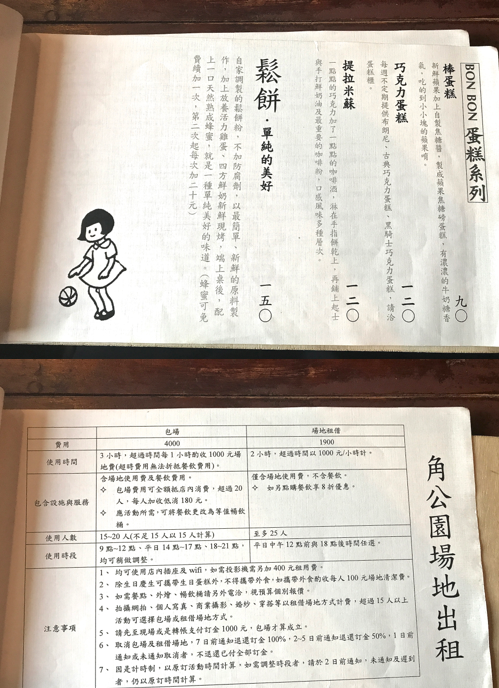 BON BON 蛋糕系列
棒蛋糕 九〇
新鮮蘋果加上自製焦糖醬，製成蘋果焦糖磅蛋糕，有濃濃的牛奶糖香
氣，吃的到小小塊的蘋果唷。
巧克力蛋糕 一二〇
每週不定期提供布朗尼、古典巧克力蛋糕、黑騎士巧克力蛋糕，請洽
蛋糕櫃。
提拉米蘇 一二〇
一點點的巧克力加了一點點的咖啡酒，淋在手指餅乾上，再鋪上起士
與手打鮮奶油及最重要的咖啡粉，口感風味多種層次。
鬆餅・單純的美好 一五〇
自家調製的鬆餅粉，不加防腐劑，以最簡單、新鮮的原料製
作，加上放養活力雞蛋、四方鮮奶新鮮現烤，端上桌後，配
上一口天然熟成蜂蜜，就是一種單純美好的味道。（蜂蜜可免
費續加一次，第二次起每次加二十元）
角公園場地出租
包場 場地租借
費用 4000 1900
使用時間 3 小時，超過時間每 1 小時酌收 1000 元場
地費(超時費用無法折抵餐飲費用)。
2 小時，超過時間以 1000 元/小時計。
包含設施與服務 含場地使用費及餐飲費用。
✧ 包場費用可全額抵店內消費，超過 20
人，每人加收低消 180 元。
✧ 應活動所需，可將餐飲更改為等值暢飲
桶。
僅含場地使用費，不含餐飲。
✧ 如另點購餐飲享 8 折優惠。
使用人數 15~20 人(不足 15 人以 15 人計算) 至多 25 人
使用時段 9 點~12 點、平日 14 點~17 點、18~21 點，
均可稍做調整。
平日中午 12 點前與 18 點後時間任選。
注意事項
1、 均可使用店內插座及 wifi，如需投影機需另加 400 元租用費。
2、 除生日慶生可攜帶生日蛋糕外，不得攜帶外食，如攜帶外食酌收每人 100 元場地清潔費。
3、 如需餐點、外燴、暢飲桶請另外電洽，視預算個別報價。
4、 拍攝網拍、個人寫真、商業攝影、婚紗、穿搭等以租借場地方式計費，超過 15 人以上
活動可選擇包場或租借場地方式。
5、 請先至現場或是轉帳支付訂金 1000 元，包場才算成立。
6、 取消包場及租借場地，7 日前通知退還訂金 100%，2~5 日前通知退還訂金 50%，1 日前
通知或未通知取消者，不退還已付全部訂金。
7、 因是計時制，以原訂活動時間計算，如需調整時段者，請於 2 日前通知，未通知及遲到
者，仍以原訂時間計算。